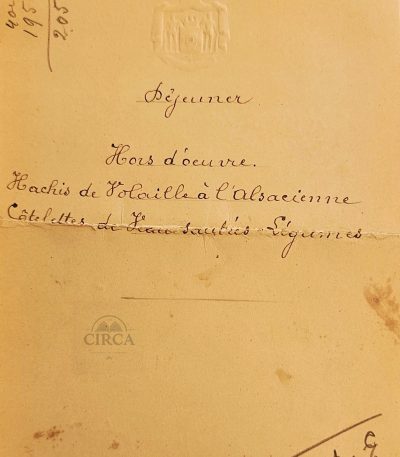 195
205
Déjeuner
Hors d'oeuvre.
Hachis de Volaille à l'Alsacienne
Côtelettes de Veau sautées Légumes
CIRCA